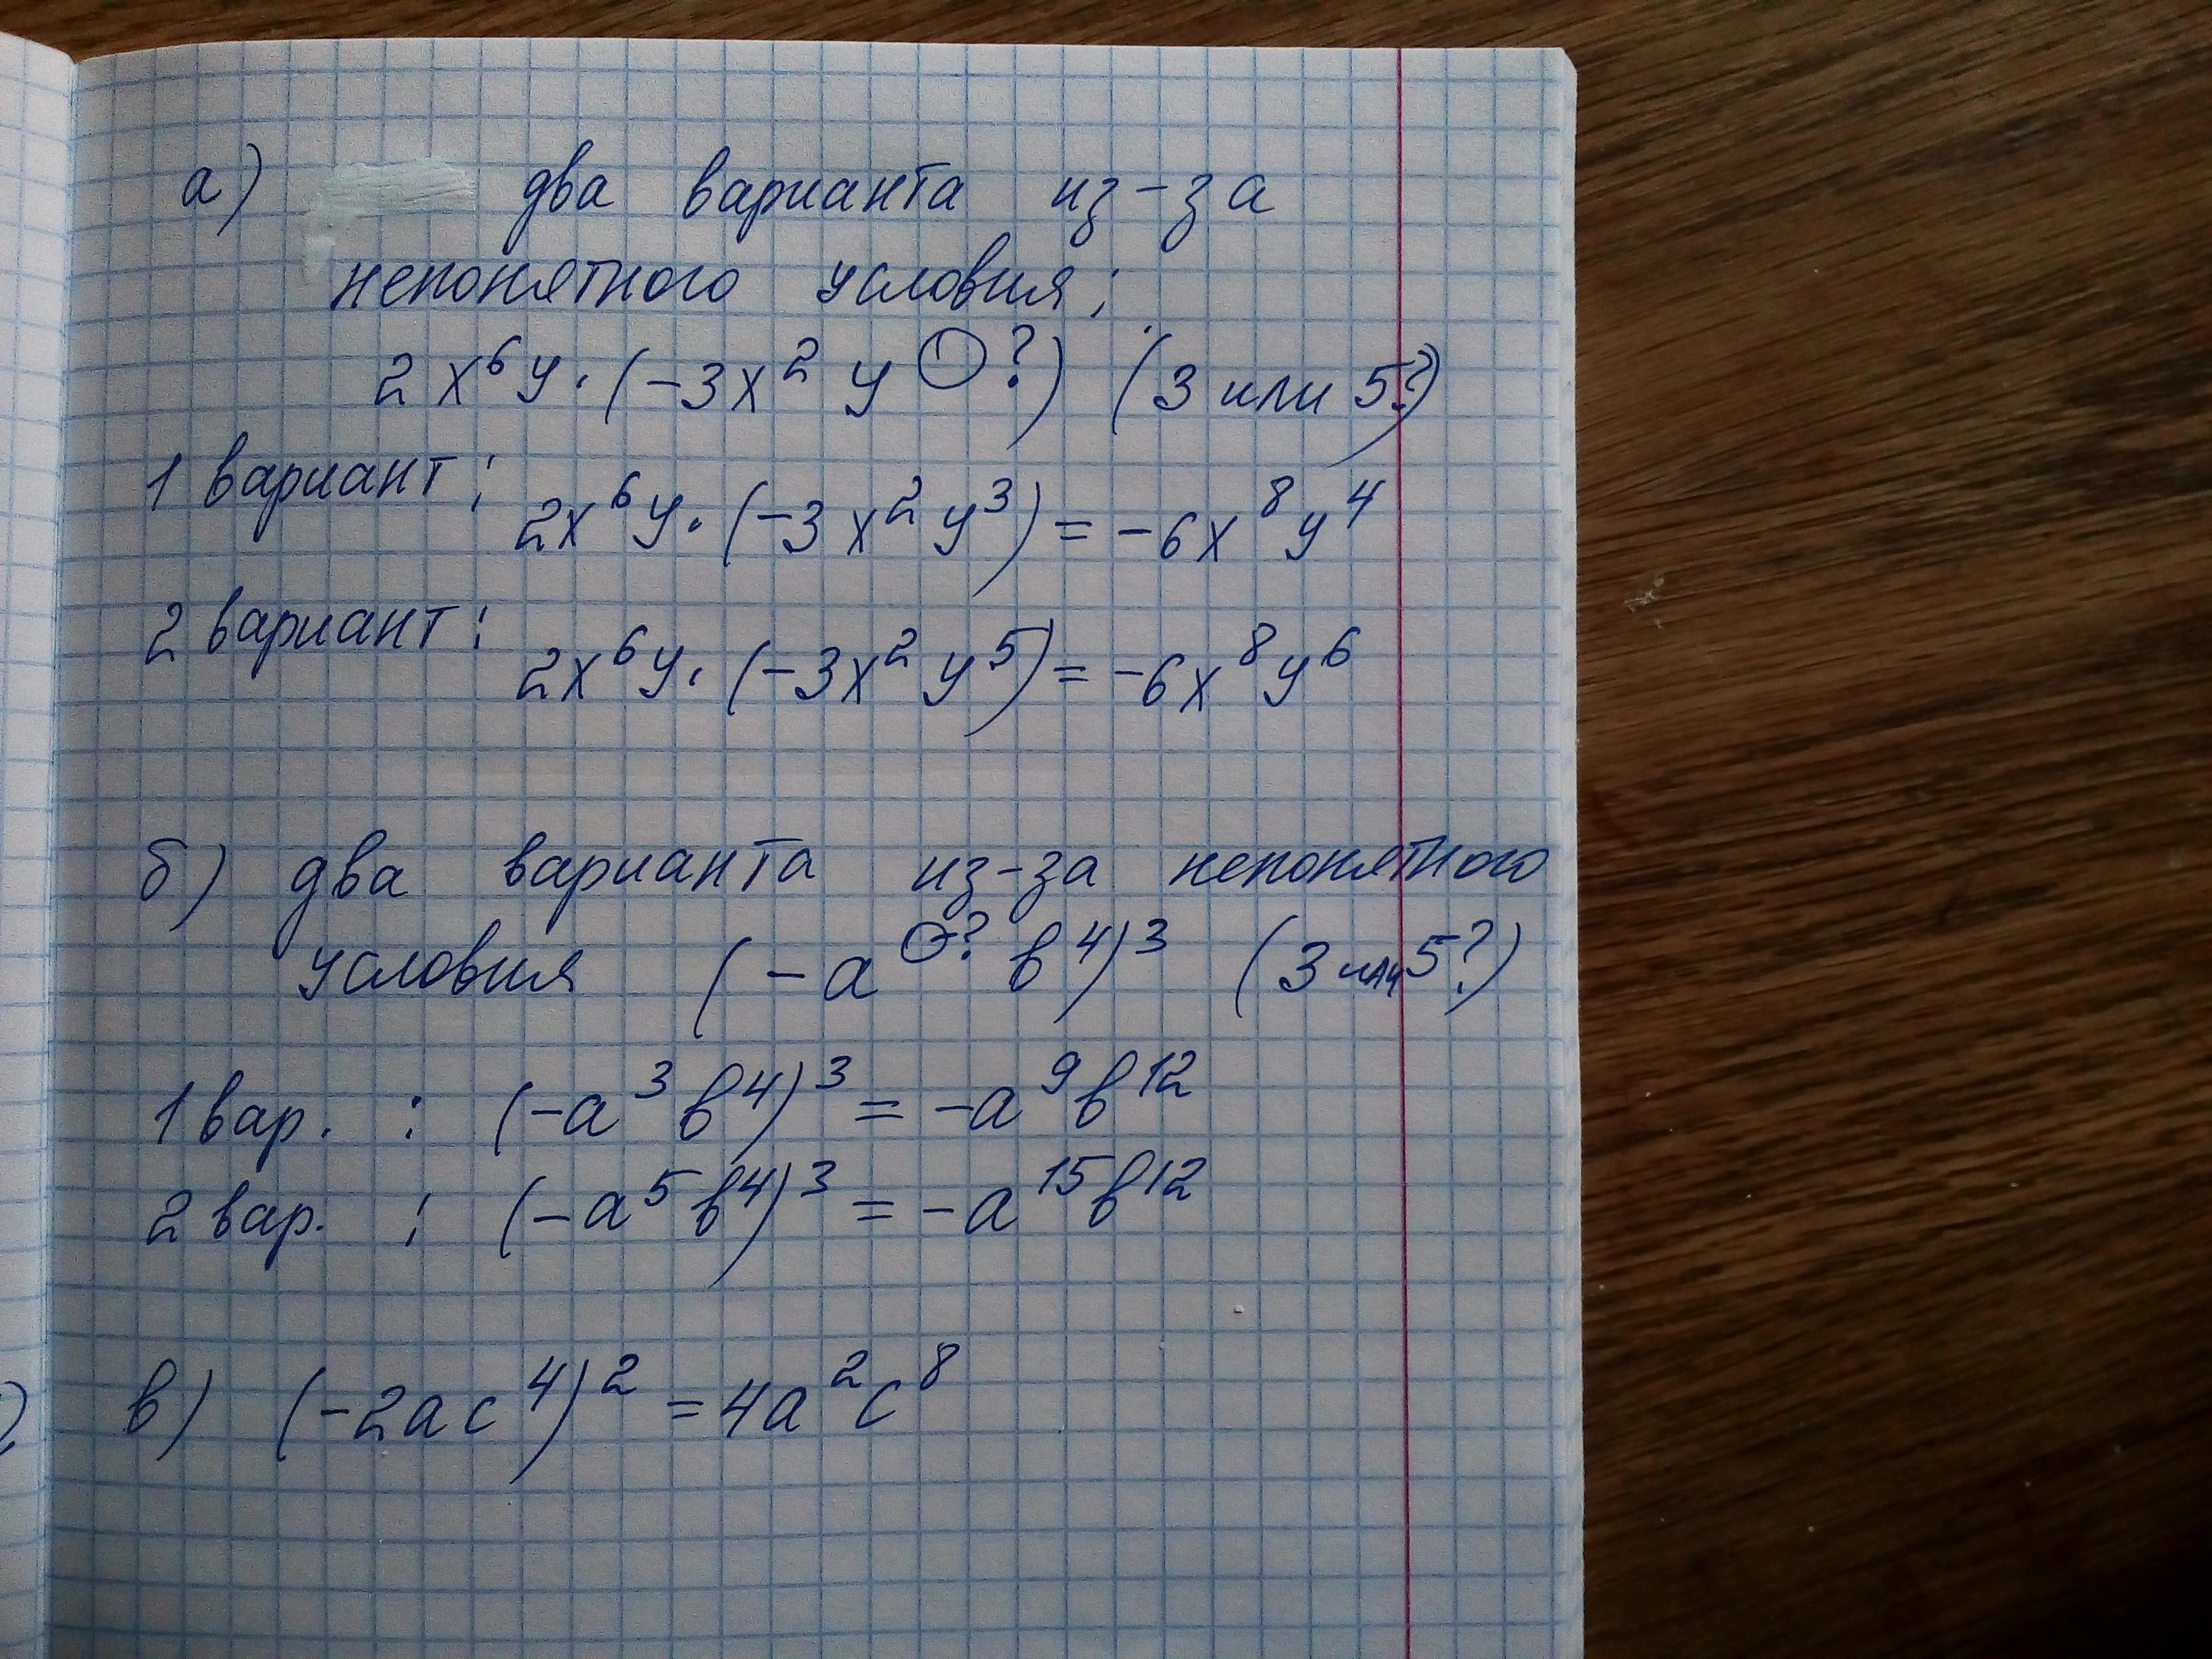 а) два варианта из-за
непонятного условия:
2x⁶y·(-3x²y ?) (3 или 5?)
1 вариант: 2x⁶y·(-3x²y³)=-6x⁸y⁴
2 вариант: 2x⁶y·(-3x²y⁵)=-6x⁸y⁶
б) два варианта из-за непонятного
условия (-a ? b⁴)³ (3 или 5?)
1 вар. : (-a³b⁴)³=-a⁹b¹²
2 вар. : (-a⁵b⁴)³=-a¹⁵b¹²
в) (-2ac⁴)²=4a²c⁸